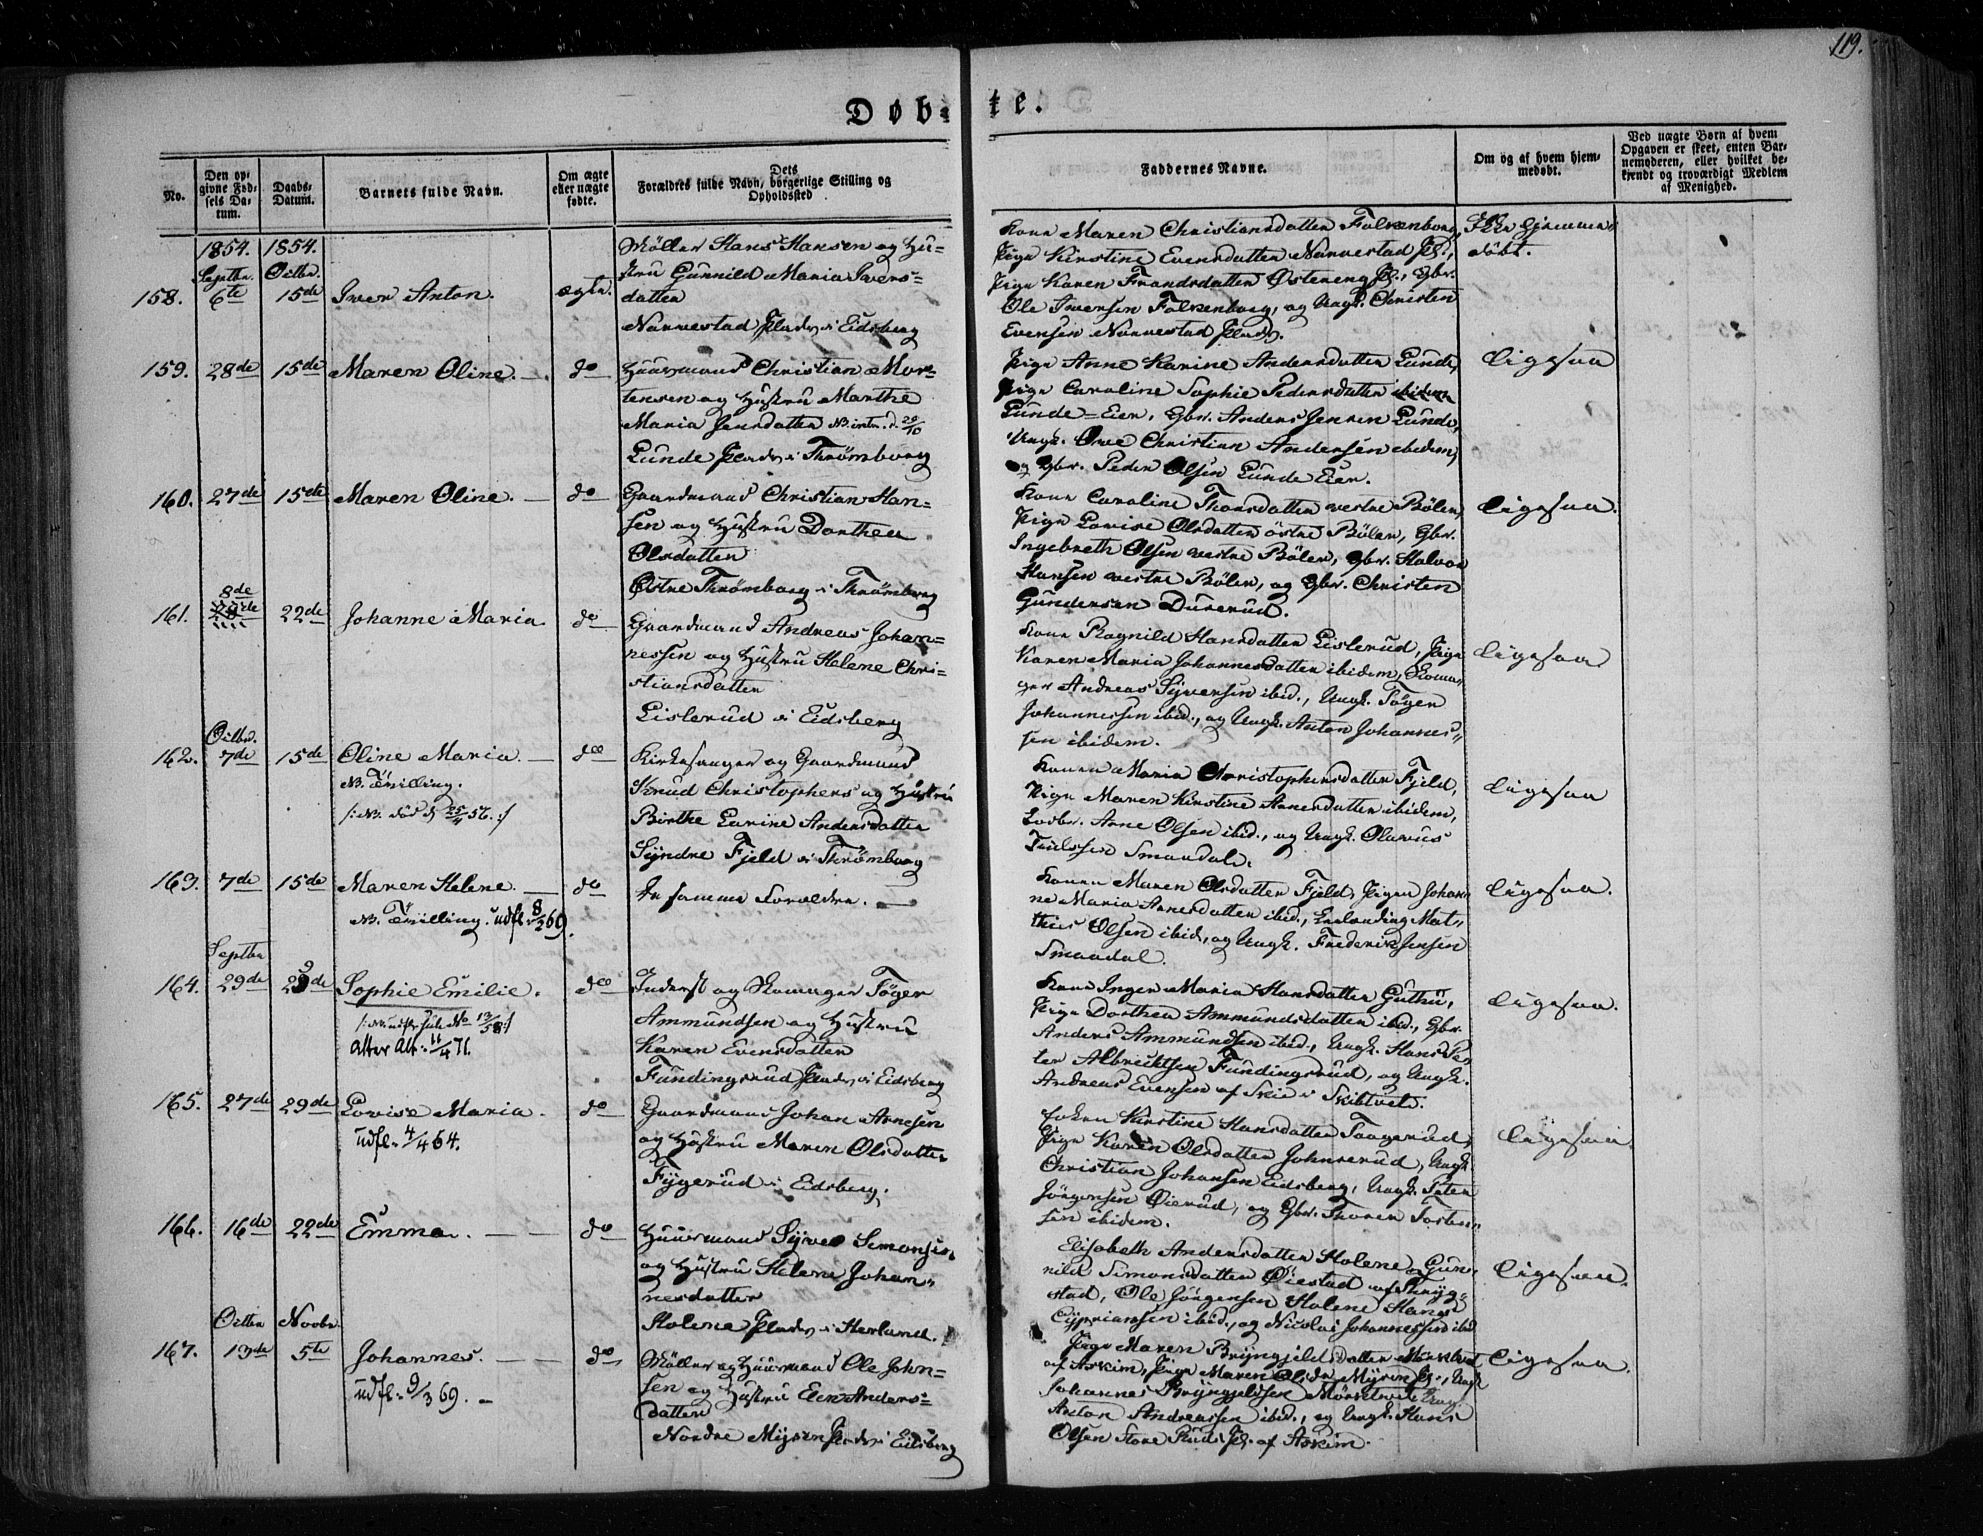 119.
Døbte.
No.
Den opgivne Fødsels Datum.
Daabs-Datum.
Barnets fulde Navn.
Om ægte eller uægte fødte.
Dets Forældres fulde Navn, borgerlige Stilling og Opholdssted
Faddernes Navne.
Om og af hvem hjemmedøbt.
Ved uægte Børn af hvem Opgaven er skeet, enten Barnemoderen, eller hvilket bekjendt og troværdigt Medlem af Menighed.
1854. 1854.
Septbr. Octbr.
158. 6te 15de Iver Anton. ægte.
Møller Hans Hansen og Hu-
stru Gunnild Maria Ivers-
datter
Narvestad Plads i Eidsberg
Kone Maren Christiansdatter Falkenborg,
Pige Kirstine Evensdatter Narvestad Pl.,
Pige Karen Frandsdatter Østereng Pl., Gbr.
Ole Iversen Falkenborg, og Ungk. Christen
Evensen Narvestad Plads.
Ikke hjemme-
døbt.
159. 28de 15de Maren Oline. do
Huusmand Christian Mor-
tensen og Hustru Marthe
Maria Jensdatter NB. intr. d. 29/10
Lunde Plads i Thrømborg
Pige Anne Karine Andersdatter Lunde,
Pige Caroline Sophie Pedersdatter
Lunde-Eier, Gbr. Anders Jensen Lunde,
Ungk. Ove Christian Andersen ibidem,
og Gbr. Peder Olsen Lunde Eier.
Ligesaa
160. 27de 15de Maren Oline. do
Gaardmand Christian Han-
sen og Hustru Dorthea
Olsdatter
Østre Thrømborg i Thrømborg
Kone Caroline Thorsdatter vestre Bölen,
Pige Lovise Olsdatter östre Bölen, Gbr.
Ingebreth Olsen vestre Bölen, Gbr. Halvor
Hansen vestre Bölen, og Gbr. Christen
Gundersen Duserud.
Ligesaa.
8de
161. 22de Johanne Maria do
Gaardmand Andreas Johan-
nessen og Hustru Helene Chri-
stiansdatter
Lislerud i Eidsberg
Kone Ragnild Hansdatter Lislerud, Pige
Karen Maria Johannesdatter ibidem, Skoma-
ger Andreas Syversen ibid., Ungk. Töger
Johannessen ibid., og Ungk. Anton Johannes-
sen ibidem.
Ligesaa
Octbr.
162. 7de 15de Oline Maria. do
NB. Tvilling.
/: NB. död d 25/4 56. :/
Kirkesanger og Gaardmand
Knud Christophers og Hustru
Birthe Karine Andersdatter
Syndre Fjeld i Thrømborg
Konen Maria Christophersdatter Fjeld,
Pige Maren Kirstine Arnesdatter ibidem,
Arne Olsen ibid., og Ungk. Olavus
Truls​sen Smaadal.
Ligesaa
163. 7de 15de Maren Helene. do
NB. Tvilling. udfl. 8/2 69.
De samme Forældre.
Konen Maren Olsdatter Fjeld, Pigen Johan-
ne Maria Arnesdatter ibid., Mat-
this Olsen ibid., og Ungk. Frederik Jensen
Smaadal.
Ligesaa.
Septbr
164. 29de 29de Sophie Emilie. do
Atter Att. 11/4 71.
Inderst og Skomager Töger
Ammundsen og Hustru
Karen Evensdatter
Fundingsrud Plads i Eidsberg
Kone Inger Maria Hansdatter Guthu,
Pige Dorthea Ammundsdatter ibid., Gbr.
Anders Ammundsen ibid., Ungk. Hans Pe-
ter Albrechtsen Fundingsrud, og Ungk.
Andreas Evensen af Skie i Skibtvet.
Ligesaa.
165. 27de 29de Lovise Maria. do
udfl. 4/4 64.
Gaardmand Johan Arnesen
og Hustru Maren Olsdatter
Fygerud i Eidsberg.
Enken Kirstine Hansdatter Taagerud,
Pige Karen Olsdatter Johnserud, Ungk.
Christian Johansen Eidsberg, Ungk. Peter
Jörgensen Öierud, og Gbr. Thoren Torsten-
sen ibidem.
Ligesaa.
166. 16de 22de Emma. do
Huusmand Syver Simonsen
og Hustru Helene Johan-
nesdatter
Holene Plads i Herland.
Elisabeth Andersdatter Holene, Gun-
nild Simonsdatter Öiestad
Ole Jörgensen Holene Hans
Cyprianssen ibid., og Nicolai Johannessen ibid
Ligesaa.
Octbr Novbr.
167. 13de 5te Johannes. do
udfl. 9/3 69.
Møller og Huusmand Ole John-
sen og Hustru Elen Anders-
datter
Nordre Mysen Plads i Eidsberg
Pige Maren Bryngjeldsdatter
af Askim, Pige Maren Olsdr Mysen Pl., Ungk
Johannes Bryngjeldsen Mörstvet Ungk.
Anton Andreassen ibid., og Ungk. Hans
Olsen Store Rud Pl. af Askim.
Ligesaa.